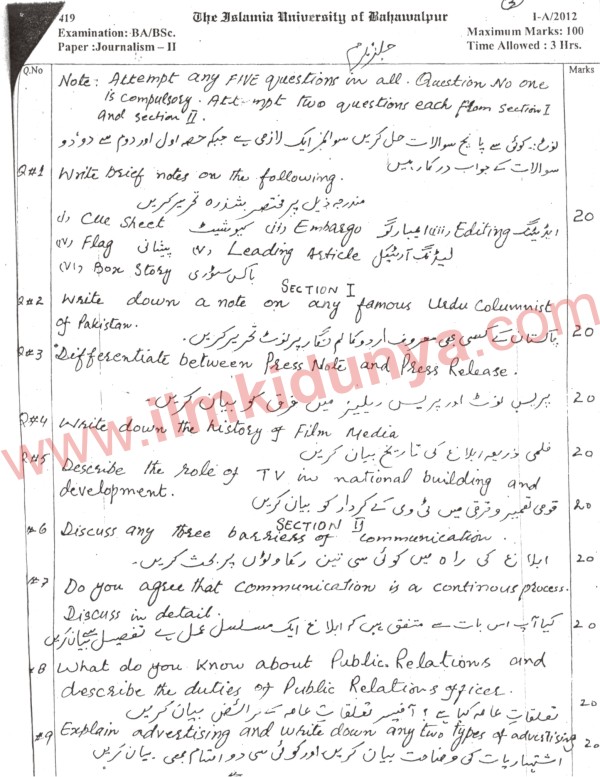 419 The Islamia University of Bahawalpur 1-A/2012
Examination: BA/BSc. Maximum Marks: 100
Paper :Journalism – II Time Allowed : 3 Hrs.
Q.No Marks
Note: Attempt any FIVE questions in all. Question No one
is compulsory. Attempt two questions each from section I
and section II.
نوٹ:۔ کوئی سے پانچ سوالات حل کریں سوال نمبر ایک لازمی ہے جبکہ حصہ اول اور دوم سے دو دو
سوالات کے جواب درکار ہیں
Q#1 Write brief notes on the following.
مندرجہ ذیل پر مختصر شذرہ تحریر کریں 20
(i) Cue Sheet کیو شیٹ (ii) Embargo ایمبارگو (iii) Editing ایڈیٹنگ
(iv) Flag پیشانی (v) Leading Article لیڈنگ آرٹیکل
(vi) Box Story باکس سٹوری
SECTION I
Q#2 Write down a note on any famous Urdu Columnist
of Pakistan. 20
پاکستان کے کسی بھی معروف اردو کالم نگار پر نوٹ تحریر کریں۔
Q#3 Differentiate between Press Note and Press Release.
پریس نوٹ اور پریس ریلیز میں فرق کو بیان کریں۔ 20
Q#4 Write down the history of Film Media
فلمی ذریعہ ابلاغ کی تاریخ بیان کریں 20
Q#5 Describe the role of TV in national building and
development.
قومی تعمیر و ترقی میں ٹی وی کے کردار کو بیان کریں 20
SECTION II
#6 Discuss any three barriers of communication.
ابلاغ کی راہ میں کوئی سی تین رکاوٹوں پر بحث کریں۔ 20
#7 Do you agree that communication is a continous process.
Discuss in detail.
کیا آپ اس بات سے متفق ہیں کہ ابلاغ ایک مسلسل عمل ہے تفصیل سے بیان کریں 20
#8 What do you know about Public Relations and
describe the duties of Public Relations officer.
تعلقات عامہ کیا ہے؟ آفیسر تعلقات عامہ کے فرائض بیان کریں 20
#9 Explain advertising and write down any two types of advertising
اشتہاریات کی وضاحت بیان کریں اور کوئی سی دو اقسام بھی بیان کریں 20
www.ilmkidunya.com